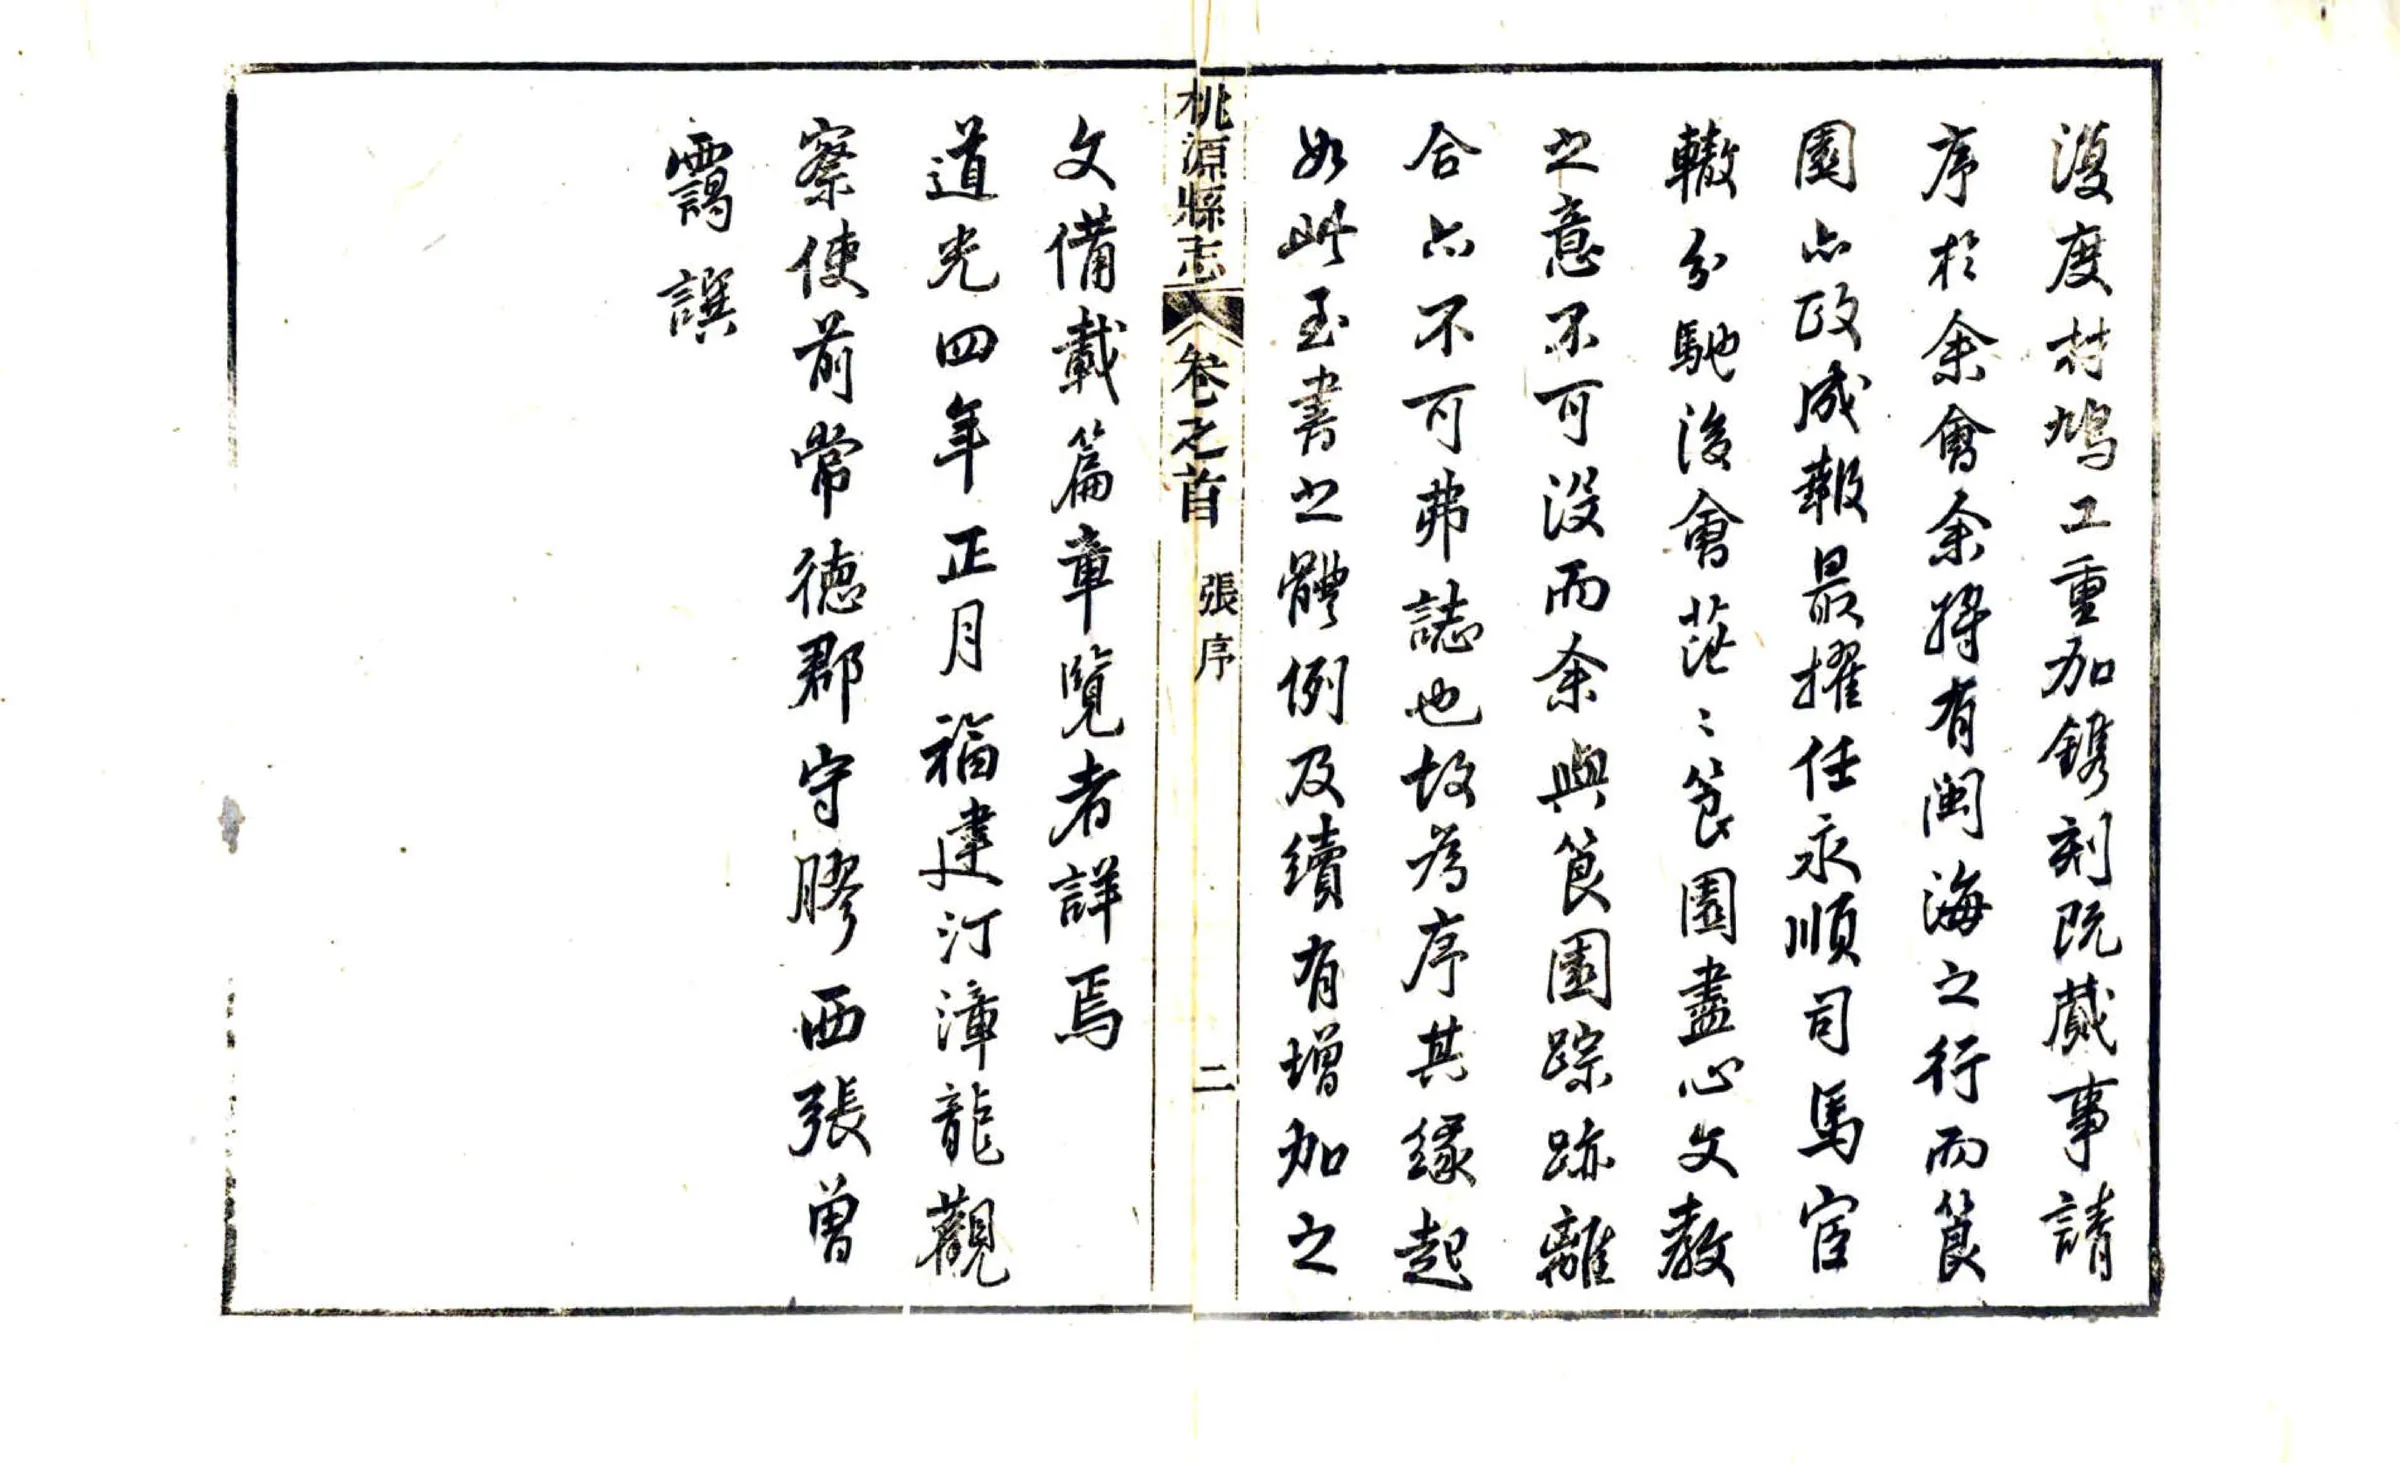 復度材鳩工重加鐫刻既蕆事請
序於余會余將有閩海之行而筤
園亦政成報最擢任永順司馬宦
轍分馳後會茫〻筤園盡心文教
之意不可沒而余與筤園踪跡離
合亦不可弗誌也故為序其緣起
如此至書之體例及續有增加之
桃源縣志 卷之首 張序 二
文備載篇章覽者詳焉
道光四年正月福建汀漳龍觀
察使前常德郡守膠西張曾
靄譔